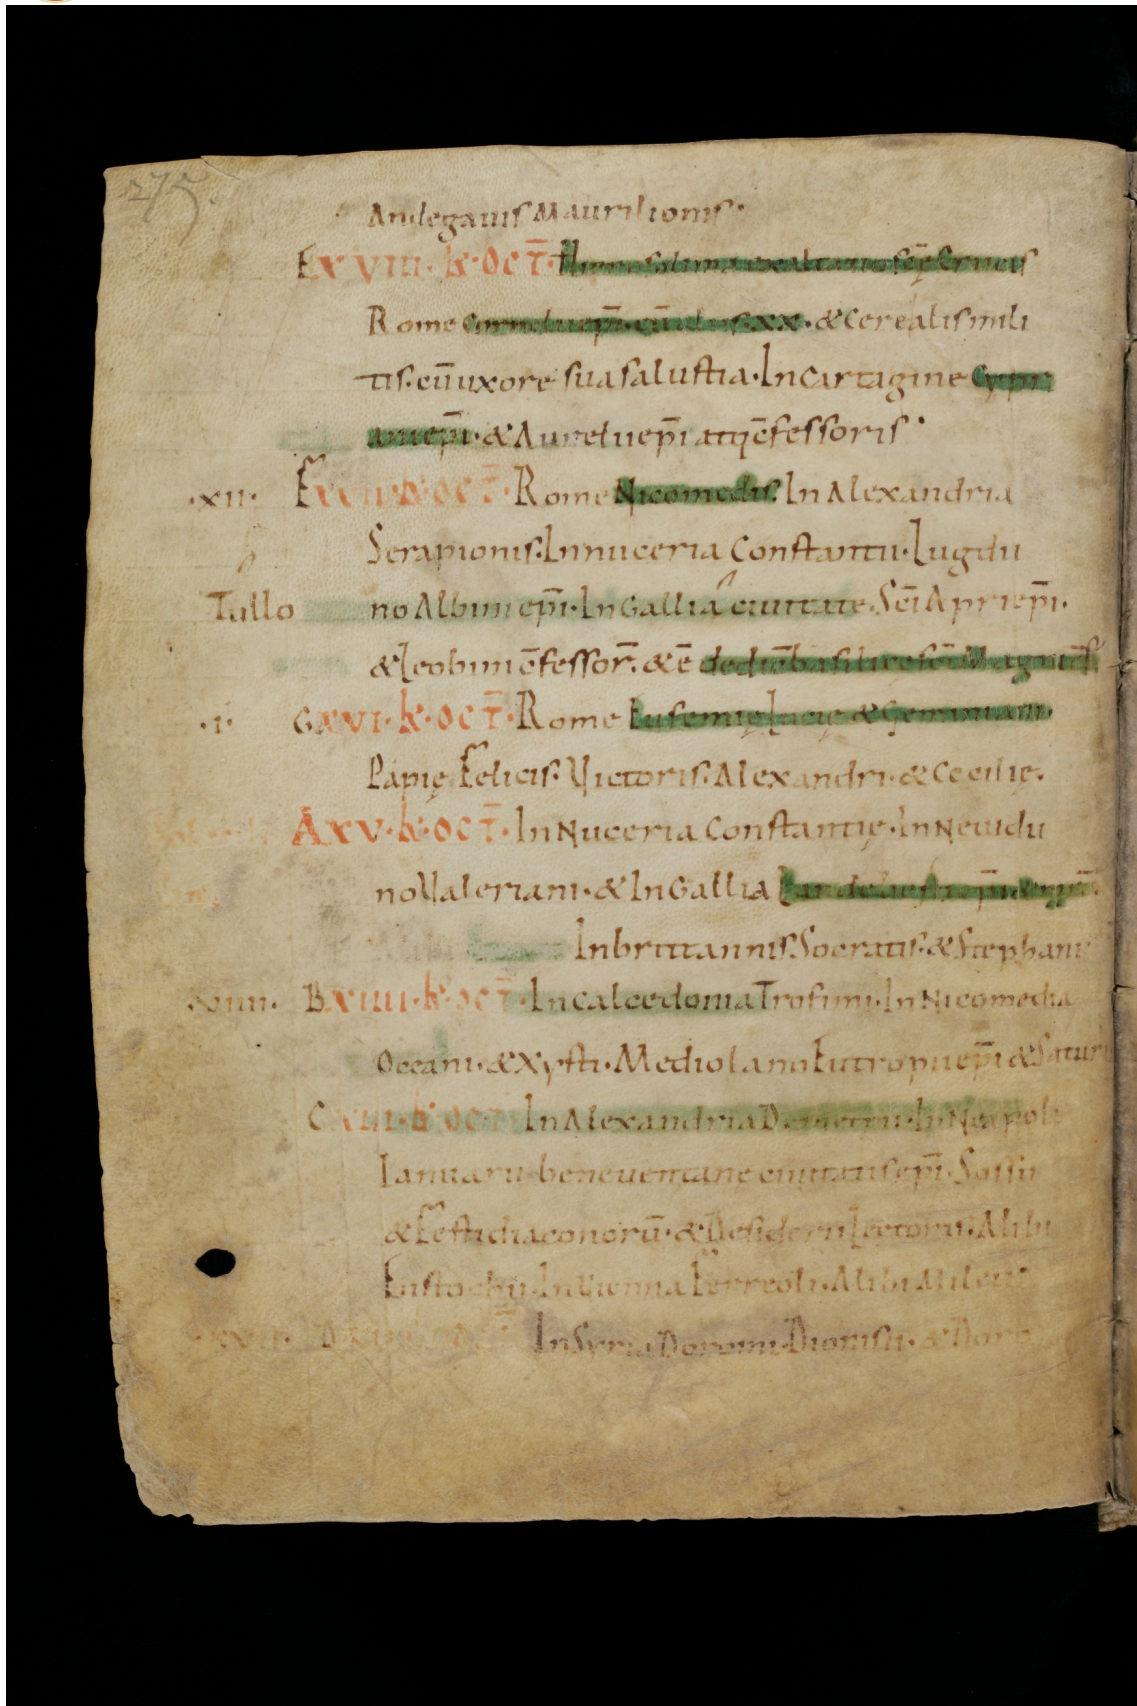 275.
Andegauis Maurilionis·
E XVIII·k̄·OCT̄· Hierosolima exaltatio sc̄ę crucis
Rome Cornelii ep̄i·cū aliis·xx·& Cerealis mili
tis·cū uxore sua salustia·In cartagine Cypri
ani ep̄i·& Aurelii ep̄i atq; c̄fessoris·
·xii· F XVII·k̄·OCT̄·Rome Nicomedis·In Alexandria
Serapionis·In nuceria Constantii·Lugdu
Tullo no Albini ep̄i·In Gallia ciuitate·Sc̄i Apri ep̄i·
& Leobini c̄fessor̄·& ē dedic̄ basilicę sc̄i Magni
·i· G XVI·k̄·OCT̄·Rome Eufemię Lucię & Geminiani·
Papię Felicis·Victoris·Alexandri·& Cecilię·
A XV·k̄·OCT̄·In Nuceria Constantię·In Neuidu
no Valeriani·& In Gallia Landeberti
In brittannis·Socratis·& Stephani
B XIIII·k̄·OCT̄·In calcedonia Trofimi·In Nicomedia
Oceani·& Xysti·Mediolano Eutropii ep̄i & Satur
C XIII·k̄·OCT̄ In Alexandria Demetrii·In Neapoli
Ianuarii beneuentane ciuitatis ep̄i·Sossii
& Festi diaconorū·& Desiderii Lectoris·Alibi
Eustochii·In Vienna Ferreoli·Alibi Mileti·
D In Syria Doromi·Dionisii·&